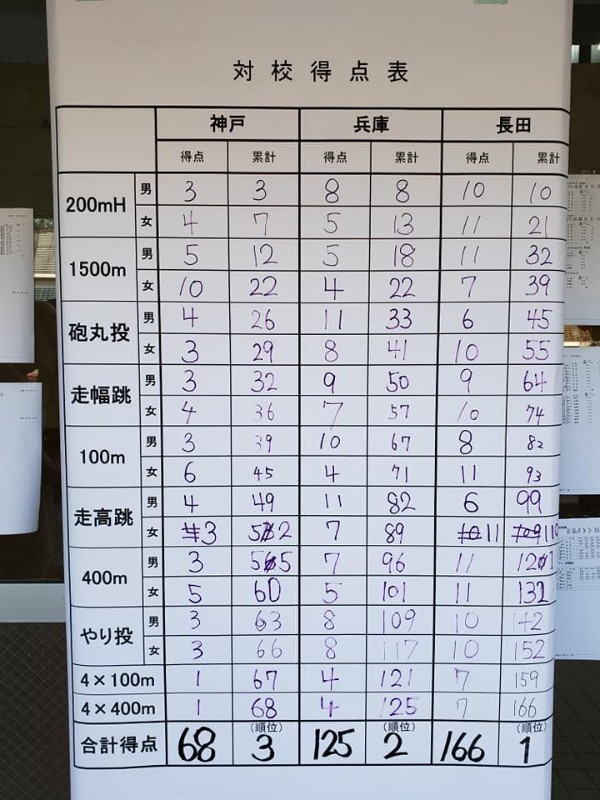 対校得点表
神戸 兵庫 長田
得点 累計 得点 累計 得点 累計
200mH 男 3 3 8 8 10 10
女 4 7 5 13 11 21
1500m 男 5 12 5 18 11 32
女 10 22 4 22 7 39
砲丸投 男 4 26 11 33 6 45
女 3 29 8 41 10 55
走幅跳 男 3 32 9 50 9 64
女 4 36 7 57 10 74
100m 男 3 39 10 67 8 82
女 6 45 4 71 11 93
走高跳 男 4 49 11 82 6 99
女 3 52 7 89 11 110
400m 男 3 55 7 96 11 121
女 5 60 5 101 11 132
やり投 男 3 63 8 109 10 142
女 3 66 8 117 10 152
4×100m 1 67 4 121 7 159
4×400m 1 68 4 125 7 166
(順位) (順位) (順位)
合計得点 68 3 125 2 166 1